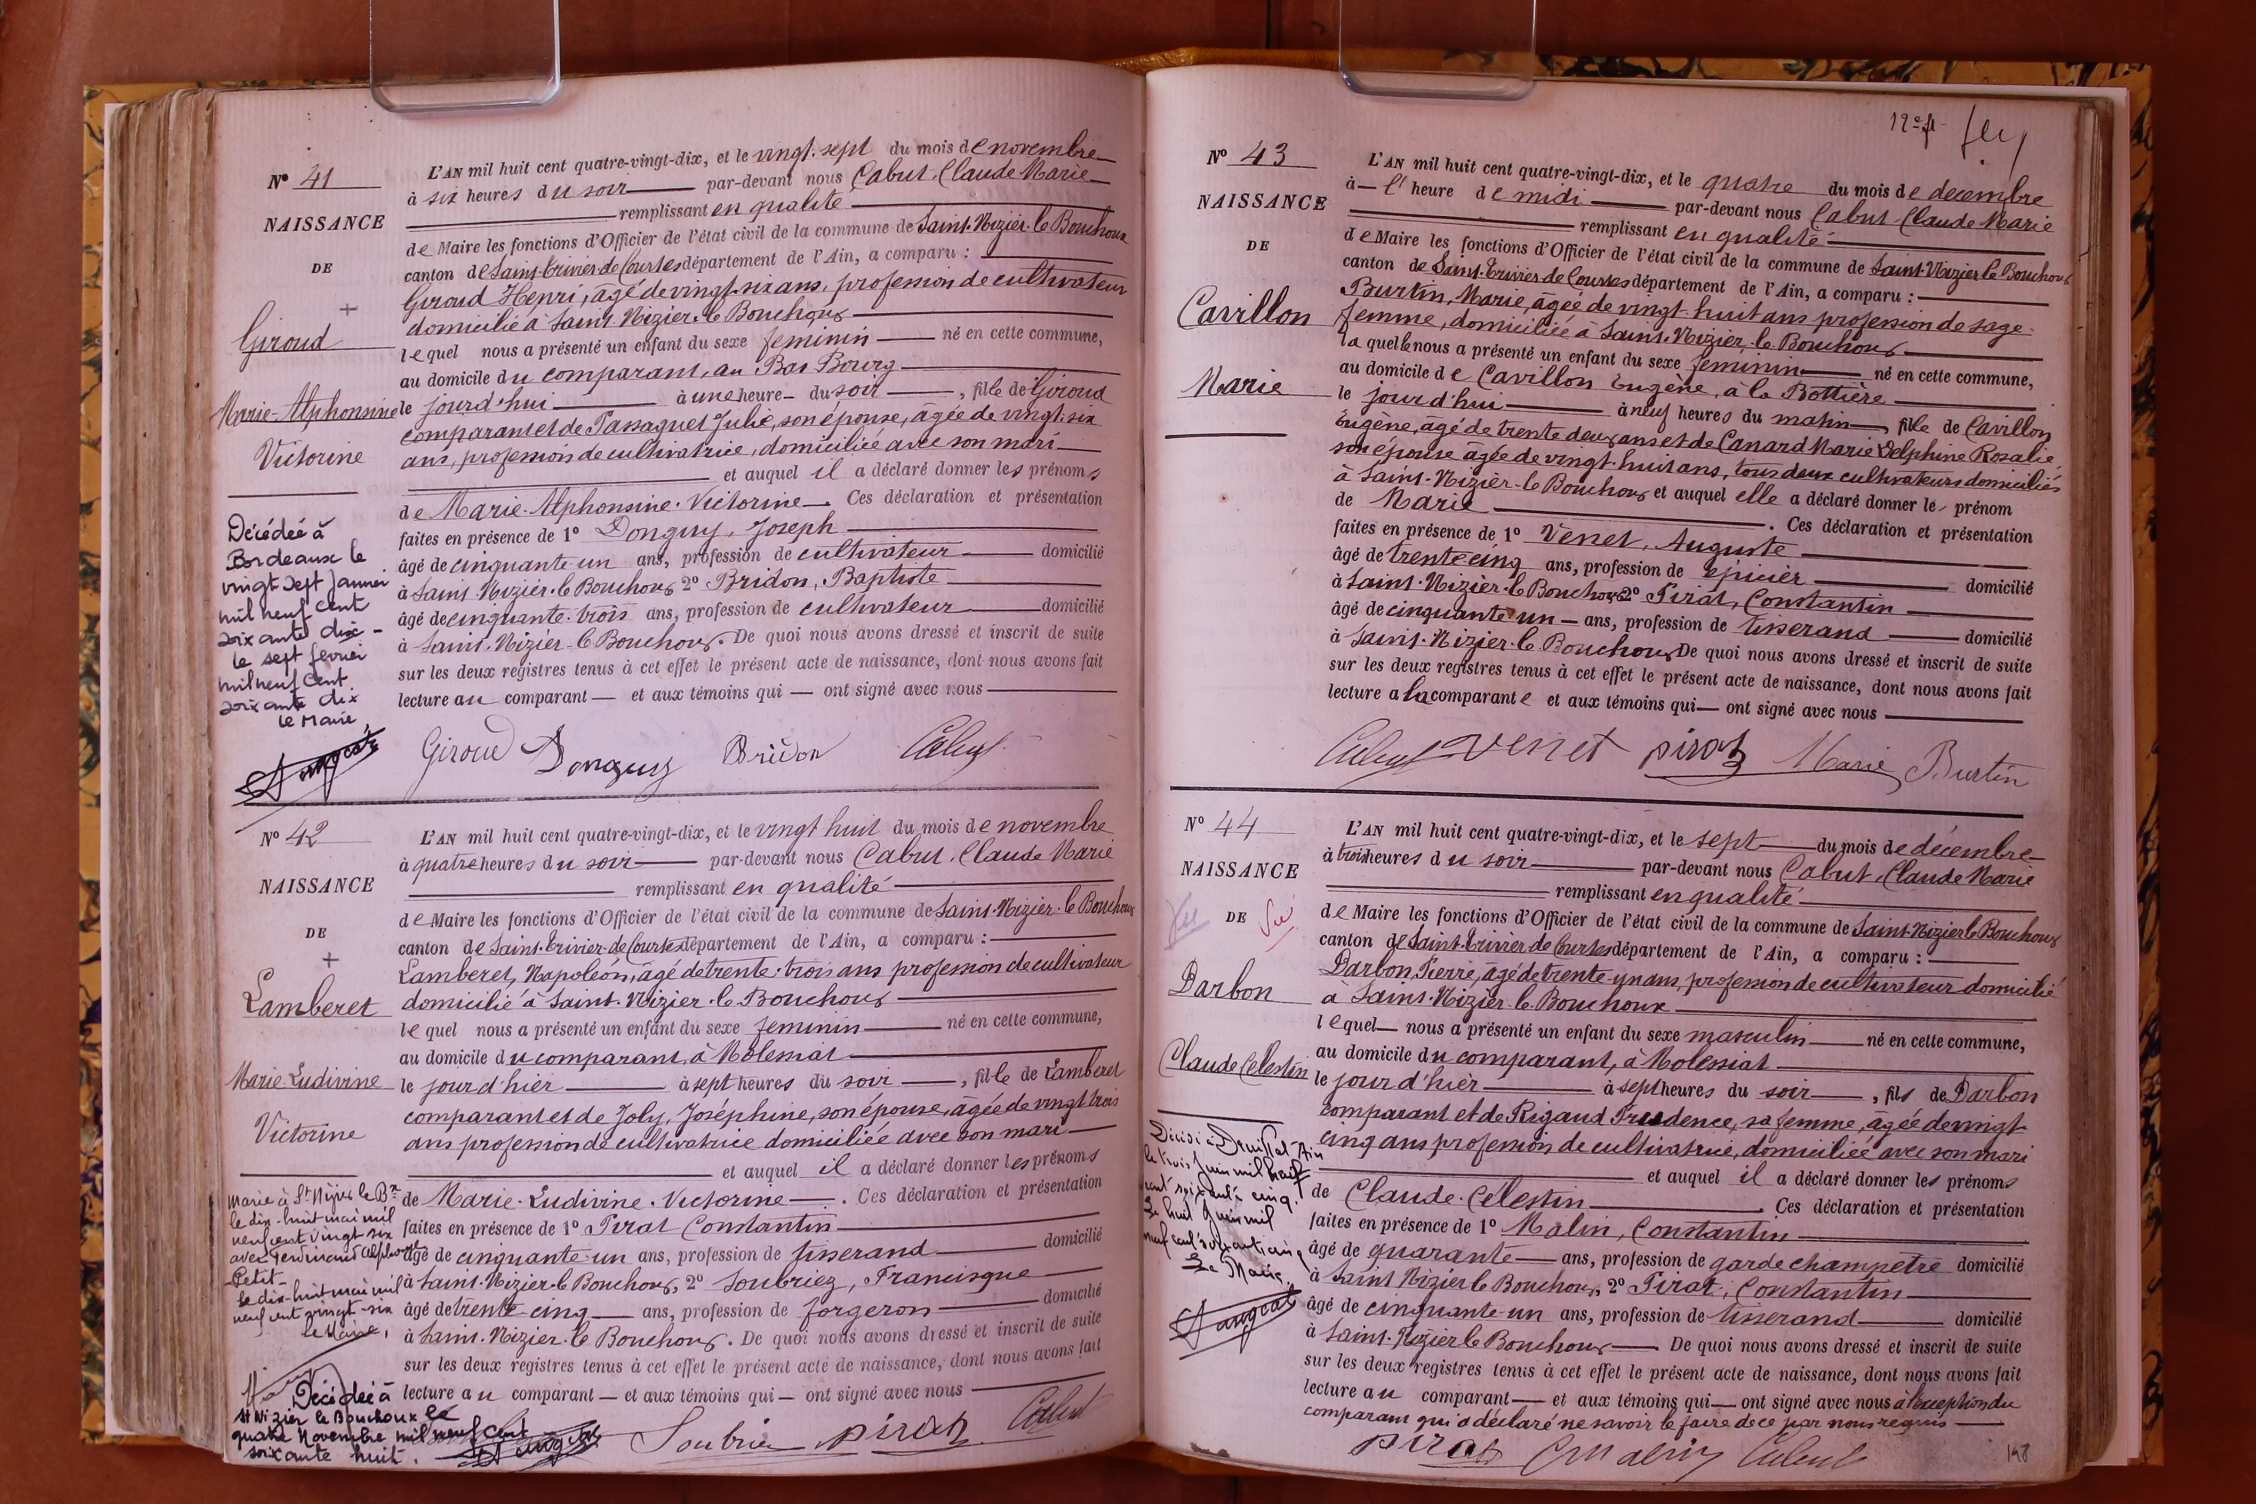 Nº 41
NAISSANCE
DE
+
Giroud
Marie-Alphonsine
Victorine
Décédée à
Bordeaux le
vingt sept janvier
mil neuf cent
soixante dix -
le sept février
mil neuf cent
soixante dix
Le Maire,
L'AN mil huit cent quatre-vingt-dix, et le vingt-sept du mois de novembre
à six heures du soir par-devant nous Cabut, Claude Marie
remplissant en qualité
de Maire les fonctions d'Officier de l'état civil de la commune de Saint-Nizier-le-Bouchoux
canton de Saint-Trivier-de-Courtes département de l'Ain, a comparu :
Giroud Henri, âgé de vingt-six ans, profession de cultivateur
domicilié à Saint-Nizier-le-Bouchoux
lequel nous a présenté un enfant du sexe féminin né en cette commune,
au domicile du comparant, au Bas Bourg
le jourd'hui à une heure du soir, fille de Giroud
comparant et de Passaquet Julie, son épouse, âgée de vingt-six
ans, profession de cultivatrice, domiciliée avec son mari
et auquel il a déclaré donner les prénoms
de Marie-Alphonsine-Victorine. Ces déclaration et présentation
faites en présence de 1º Donguy, Joseph
âgé de cinquante-un ans, profession de cultivateur domicilié
à Saint-Nizier-le-Bouchoux 2º Bridon, Baptiste
âgé de cinquante-trois ans, profession de cultivateur domicilié
à Saint-Nizier-le-Bouchoux. De quoi nous avons dressé et inscrit de suite
sur les deux registres tenus à cet effet le présent acte de naissance, dont nous avons fait
lecture au comparant et aux témoins qui ont signé avec nous
Giroud Donguy Bridon Cabut
Nº 42
NAISSANCE
DE
+
Lamberet
Marie Ludivine
Victorine
Marie à St Nizier le Bx
le dix-huit mai mil
neuf cent vingt six
avec Ferdinand Alphonse
Petit -
Le dix-huit mai mil
neuf cent vingt-six
Le Maire,
Décédée à
St Nizier le Bouchoux le
quatre Novembre mil neuf cent
soixante huit.
L'AN mil huit cent quatre-vingt-dix, et le vingt huit du mois de novembre
à quatre heures du soir par-devant nous Cabut, Claude Marie
remplissant en qualité
de Maire les fonctions d'Officier de l'état civil de la commune de Saint-Nizier-le-Bouchoux
canton de Saint-Trivier-de-Courtes département de l'Ain, a comparu :
Lamberet, Napoléon, âgé de trente-trois ans profession de cultivateur
domicilié à Saint-Nizier-le-Bouchoux
lequel nous a présenté un enfant du sexe féminin né en cette commune,
au domicile du comparant, à Molessiat
le jour d'hier à sept heures du soir, fille de Lamberet
comparant et de Joly, Joséphine, son épouse, âgée de vingt trois
ans profession de cultivatrice domiciliée avec son mari
et auquel il a déclaré donner les prénoms
de Marie-Ludivine-Victorine. Ces déclaration et présentation
faites en présence de 1º Pirat Constantin
âgé de cinquante-un ans, profession de tisserand domicilié
à Saint-Nizier-le-Bouchoux, 2º Soubriez, Francisque
âgé de trente-cinq ans, profession de forgeron domicilié
à Saint-Nizier-le-Bouchoux. De quoi nous avons dressé et inscrit de suite
sur les deux registres tenus à cet effet le présent acte de naissance, dont nous avons fait
lecture au comparant et aux témoins qui ont signé avec nous
Pirat Cabut
12e f
Nº 43
NAISSANCE
DE
Cavillon
Marie
L'AN mil huit cent quatre-vingt-dix, et le quatre du mois de décembre
à l'heure de midi par-devant nous Cabut Claude Marie
remplissant en qualité
de Maire les fonctions d'Officier de l'état civil de la commune de Saint-Nizier le Bouchoux
canton de Saint-Trivier-de-Courtes département de l'Ain, a comparu :
Burtin, Marie, âgée de vingt-huit ans profession de sage-
femme, domiciliée à Saint-Nizier-le-Bouchoux
laquelle nous a présenté un enfant du sexe féminin né en cette commune,
au domicile de Cavillon Eugène, à la Bottière
le jourd'hui à neuf heures du matin, fille de Cavillon
Eugène, âgé de trente deux ans et de Canard Marie Delphine Rosalie
son épouse âgée de vingt-huit ans, tous deux cultivateurs domiciliés
à Saint-Nizier-le-Bouchoux et auquel elle a déclaré donner le prénom
de Marie. Ces déclaration et présentation
faites en présence de 1º Venet, Auguste
âgé de trente-cinq ans, profession de épicier domicilié
à Saint-Nizier-le-Bouchoux 2º Pirat, Constantin
âgé de cinquante-un ans, profession de tisserand domicilié
à Saint-Nizier-le-Bouchoux De quoi nous avons dressé et inscrit de suite
sur les deux registres tenus à cet effet le présent acte de naissance, dont nous avons fait
lecture à la comparante et aux témoins qui ont signé avec nous
Cabut Venet Pirat Marie Burtin
Nº 44
NAISSANCE
DE
Vu
Darbon
Claude Celestin
Décédé à Druillat Ain
le trois juin mil neuf
cent soixante cinq.
Le huit juin mil
neuf cent soixante cinq
Le Maire,
L'AN mil huit cent quatre-vingt-dix, et le sept du mois de décembre
à trois heures du soir par-devant nous Cabut, Claude Marie
remplissant en qualité
de Maire les fonctions d'Officier de l'état civil de la commune de Saint-Nizier le Bouchoux
canton de Saint-Trivier-de-Courtes département de l'Ain, a comparu :
Darbon, Pierre, âgé de trente-un ans, profession de cultivateur domicilié
à Saint-Nizier-le-Bouchoux
lequel nous a présenté un enfant du sexe masculin né en cette commune,
au domicile du comparant, à Molessiat
le jour d'hier à sept heures du soir, fils de Darbon
comparant et de Rigaud Prudence, sa femme, âgée de vingt-
cinq ans profession de cultivatrice, domiciliée avec son mari
et auquel il a déclaré donner les prénoms
de Claude-Célestin. Ces déclaration et présentation
faites en présence de 1º Malin, Constantin
âgé de quarante ans, profession de garde champêtre domicilié
à Saint Nizier le Bouchoux, 2º Pirat, Constantin
âgé de cinquante-un ans, profession de tisserand domicilié
à Saint-Nizier le Bouchoux De quoi nous avons dressé et inscrit de suite
sur les deux registres tenus à cet effet le présent acte de naissance, dont nous avons fait
lecture au comparant et aux témoins qui ont signé avec nous à l'exception du
comparant qui a déclaré ne savoir le faire de ce par nous requis
Pirat Malin Cabut
148